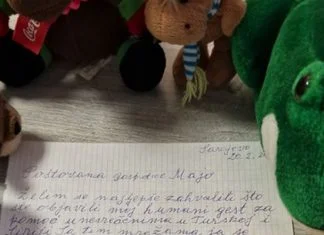 Coca
Sarajevo
20.2.2
Poštovana gospođo Majo
Želim se najljepše zahvaliti što
ste objavili moj humani gest za
pomoć unesrećenima u Turskoj i
Siriji